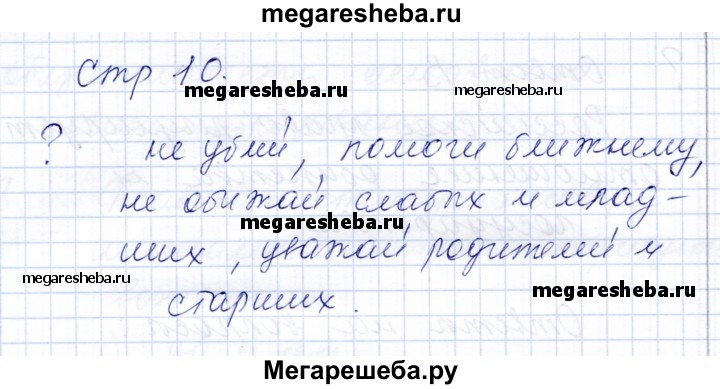 megaresheba.ru
стр 10.
megaresheba.ru
megaresheba.ru
? не убий, помоги ближнему,
не обижай слабых и млад-
megaresheba.ru
ших, уважай родителей и
megaresheba.ru
megaresheba.ru
старших.
Мегарешеба.ру